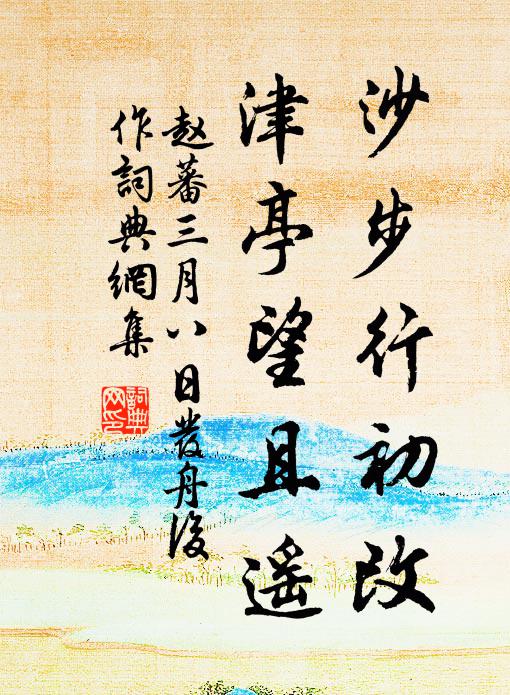 沙步行初改
津亭望且遥
赵蕃三月八日發舟後
作詞典網集
詞典網印